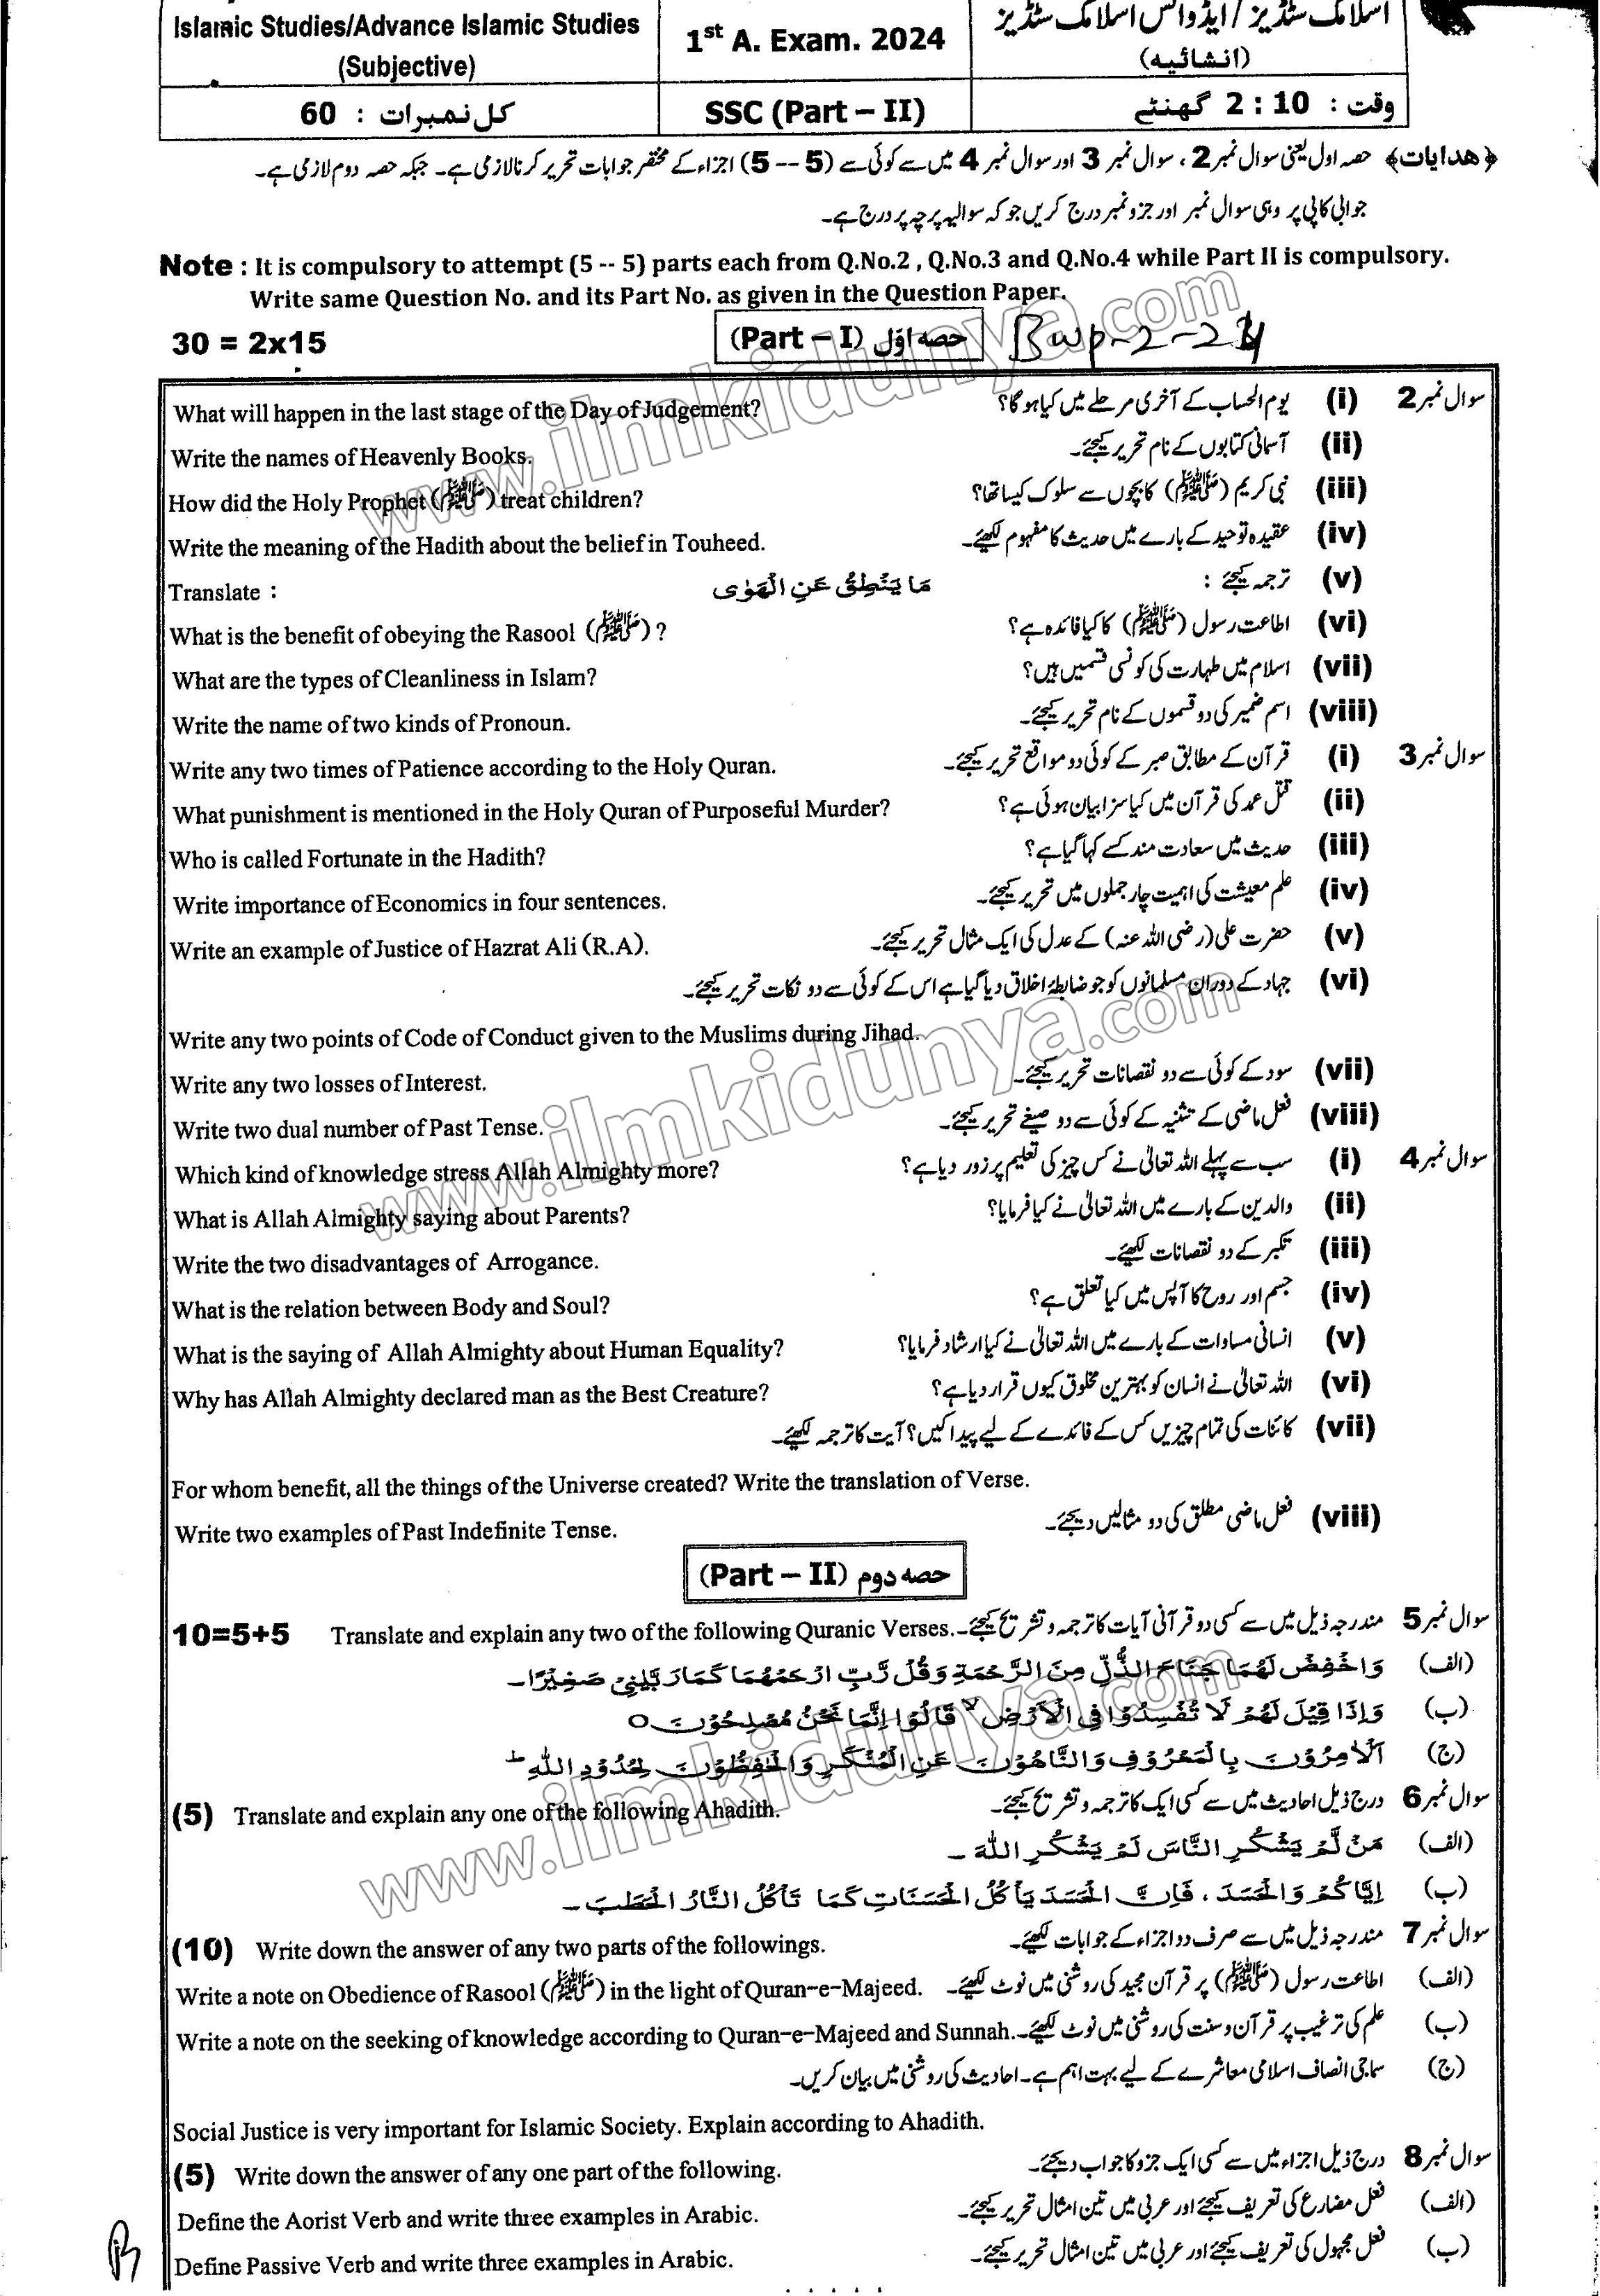 Islamic Studies/Advance Islamic Studies
(Subjective)
1st A. Exam. 2024
اسلامک سٹڈیز/ایڈوانس اسلامک سٹڈیز
(انشائیہ)
کل نمبرات : 60
SSC (Part – II)
وقت : 2 : 10 گھنٹے
﴿ھدایات﴾ حصہ اول یعنی سوال نمبر 2، سوال نمبر 3 اور سوال نمبر 4 میں سے کوئی سے (5 -- 5) اجزاء کے مختصر جوابات تحریر کرنا لازمی ہے۔ جبکہ حصہ دوم لازمی ہے۔
جوابی کاپی پر وہی سوال نمبر اور جزو نمبر درج کریں جو کہ سوالیہ پرچہ پر درج ہے۔
Note : It is compulsory to attempt (5 -- 5) parts each from Q.No.2 , Q.No.3 and Q.No.4 while Part II is compulsory.
Write same Question No. and its Part No. as given in the Question Paper.
30 = 2x15
حصہ اوّل (Part – I)
Bwp-2-24
سوال نمبر 2 (i) یوم الحساب کے آخری مرحلے میں کیا ہوگا؟
What will happen in the last stage of the Day of Judgement?
(ii) آسمانی کتابوں کے نام تحریر کیجئے۔
Write the names of Heavenly Books.
(iii) نبی کریم (ﷺ) کا بچوں سے سلوک کیسا تھا؟
How did the Holy Prophet (ﷺ) treat children?
(iv) عقیدہ توحید کے بارے میں حدیث کا مفہوم لکھئے۔
Write the meaning of the Hadith about the belief in Touheed.
(v) ترجمہ کیجئے :
مَا يَنْطِقُ عَنِ الْهَوٰى
Translate :
(vi) اطاعت رسول (ﷺ) کا کیا فائدہ ہے؟
What is the benefit of obeying the Rasool (ﷺ) ?
(vii) اسلام میں طہارت کی کونسی قسمیں ہیں؟
What are the types of Cleanliness in Islam?
(viii) اسم ضمیر کی دو قسموں کے نام تحریر کیجئے۔
Write the name of two kinds of Pronoun.
سوال نمبر 3 (i) قرآن کے مطابق صبر کے کوئی دو مواقع تحریر کیجئے۔
Write any two times of Patience according to the Holy Quran.
(ii) قتل عمد کی قرآن میں کیا سزا بیان ہوئی ہے؟
What punishment is mentioned in the Holy Quran of Purposeful Murder?
(iii) حدیث میں سعادت مند کسے کہا گیا ہے؟
Who is called Fortunate in the Hadith?
(iv) علم معیشت کی اہمیت چار جملوں میں تحریر کیجئے۔
Write importance of Economics in four sentences.
(v) حضرت علی (رضی اللہ عنہ) کے عدل کی ایک مثال تحریر کیجئے۔
Write an example of Justice of Hazrat Ali (R.A).
(vi) جہاد کے دوران مسلمانوں کو جو ضابطۂ اخلاق دیا گیا ہے اس کے کوئی سے دو نکات تحریر کیجئے۔
Write any two points of Code of Conduct given to the Muslims during Jihad.
(vii) سود کے کوئی سے دو نقصانات تحریر کیجئے۔
Write any two losses of Interest.
(viii) فعل ماضی کے تثنیہ کے کوئی سے دو صیغے تحریر کیجئے۔
Write two dual number of Past Tense.
سوال نمبر 4 (i) سب سے پہلے اللہ تعالیٰ نے کس چیز کی تعلیم پر زور دیا ہے؟
Which kind of knowledge stress Allah Almighty more?
(ii) والدین کے بارے میں اللہ تعالیٰ نے کیا فرمایا؟
What is Allah Almighty saying about Parents?
(iii) تکبر کے دو نقصانات لکھئے۔
Write the two disadvantages of Arrogance.
(iv) جسم اور روح کا آپس میں کیا تعلق ہے؟
What is the relation between Body and Soul?
(v) انسانی مساوات کے بارے میں اللہ تعالیٰ نے کیا ارشاد فرمایا؟
What is the saying of Allah Almighty about Human Equality?
(vi) اللہ تعالیٰ نے انسان کو بہترین مخلوق کیوں قرار دیا ہے؟
Why has Allah Almighty declared man as the Best Creature?
(vii) کائنات کی تمام چیزیں کس کے فائدے کے لیے پیدا کیں؟ آیت کا ترجمہ لکھئے۔
For whom benefit, all the things of the Universe created? Write the translation of Verse.
(viii) فعل ماضی مطلق کی دو مثالیں دیجئے۔
Write two examples of Past Indefinite Tense.
حصہ دوم (Part – II)
سوال نمبر 5 مندرجہ ذیل میں سے کسی دو قرآنی آیات کا ترجمہ و تشریح کیجئے۔
10=5+5 Translate and explain any two of the following Quranic Verses.
(الف) وَاخْفِضْ لَهُمَا جَنَاحَ الذُّلِّ مِنَ الرَّحْمَةِ وَقُلْ رَّبِّ ارْحَمْهُمَا كَمَا رَبَّيٰنِيْ صَغِيْرًا۔
(ب) وَاِذَا قِيْلَ لَهُمْ لَا تُفْسِدُوْا فِي الْاَرْضِ ۙ قَالُوْا اِنَّمَا نَحْنُ مُصْلِحُوْنَ ○
(ج) اَلْاٰمِرُوْنَ بِالْمَعْرُوْفِ وَالنَّاهُوْنَ عَنِ الْمُنْكَرِ وَالْحٰفِظُوْنَ لِحُدُوْدِ اللّٰهِ ؕ
سوال نمبر 6 درج ذیل احادیث میں سے کسی ایک کا ترجمہ و تشریح کیجئے۔
(5) Translate and explain any one of the following Ahadith.
(الف) مَنْ لَّمْ يَشْكُرِ النَّاسَ لَمْ يَشْكُرِ اللّٰهَ ۔
(ب) اِيَّاكُمْ وَالْحَسَدَ ، فَاِنَّ الْحَسَدَ يَأْكُلُ الْحَسَنَاتِ كَمَا تَأْكُلُ النَّارُ الْحَطَبَ ۔
سوال نمبر 7 مندرجہ ذیل میں سے صرف دو اجزاء کے جوابات لکھئے۔
(10) Write down the answer of any two parts of the followings.
(الف) اطاعت رسول (ﷺ) پر قرآن مجید کی روشنی میں نوٹ لکھئے۔
Write a note on Obedience of Rasool (ﷺ) in the light of Quran-e-Majeed.
(ب) علم کی ترغیب پر قرآن و سنت کی روشنی میں نوٹ لکھئے۔
Write a note on the seeking of knowledge according to Quran-e-Majeed and Sunnah.
(ج) سماجی انصاف اسلامی معاشرے کے لیے بہت اہم ہے۔ احادیث کی روشنی میں بیان کریں۔
Social Justice is very important for Islamic Society. Explain according to Ahadith.
سوال نمبر 8 درج ذیل اجزاء میں سے کسی ایک جزو کا جواب دیجئے۔
(5) Write down the answer of any one part of the following.
(الف) فعل مضارع کی تعریف کیجئے اور عربی میں تین امثال تحریر کیجئے۔
Define the Aorist Verb and write three examples in Arabic.
(ب) فعل مجہول کی تعریف کیجئے اور عربی میں تین امثال تحریر کیجئے۔
Define Passive Verb and write three examples in Arabic.
www.ilmkidunya.com
www.ilmkidunya.com
www.ilmkidunya.com